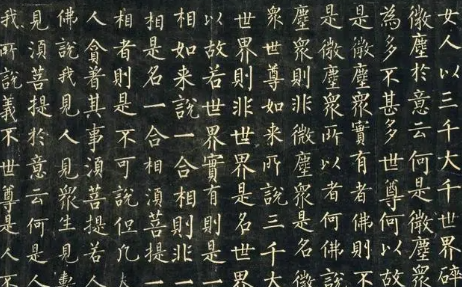 女人以三千大千世界碎
微塵於意云何是微塵衆
為多不甚多世尊何以故
是微塵衆實有者佛則不
是微塵衆所以者何佛說
塵衆則非微塵衆是名微
衆世尊如来所說三千大
世界則非世界是名世界
以故若世界實有則是一
相如来說一合相則非一
相是名一合相須菩提一
相者則是不可說但凡
人貪著其事須菩提若人
佛說我見人見衆生見壽
見須菩提於意云何是人
我所說義不世尊是人不